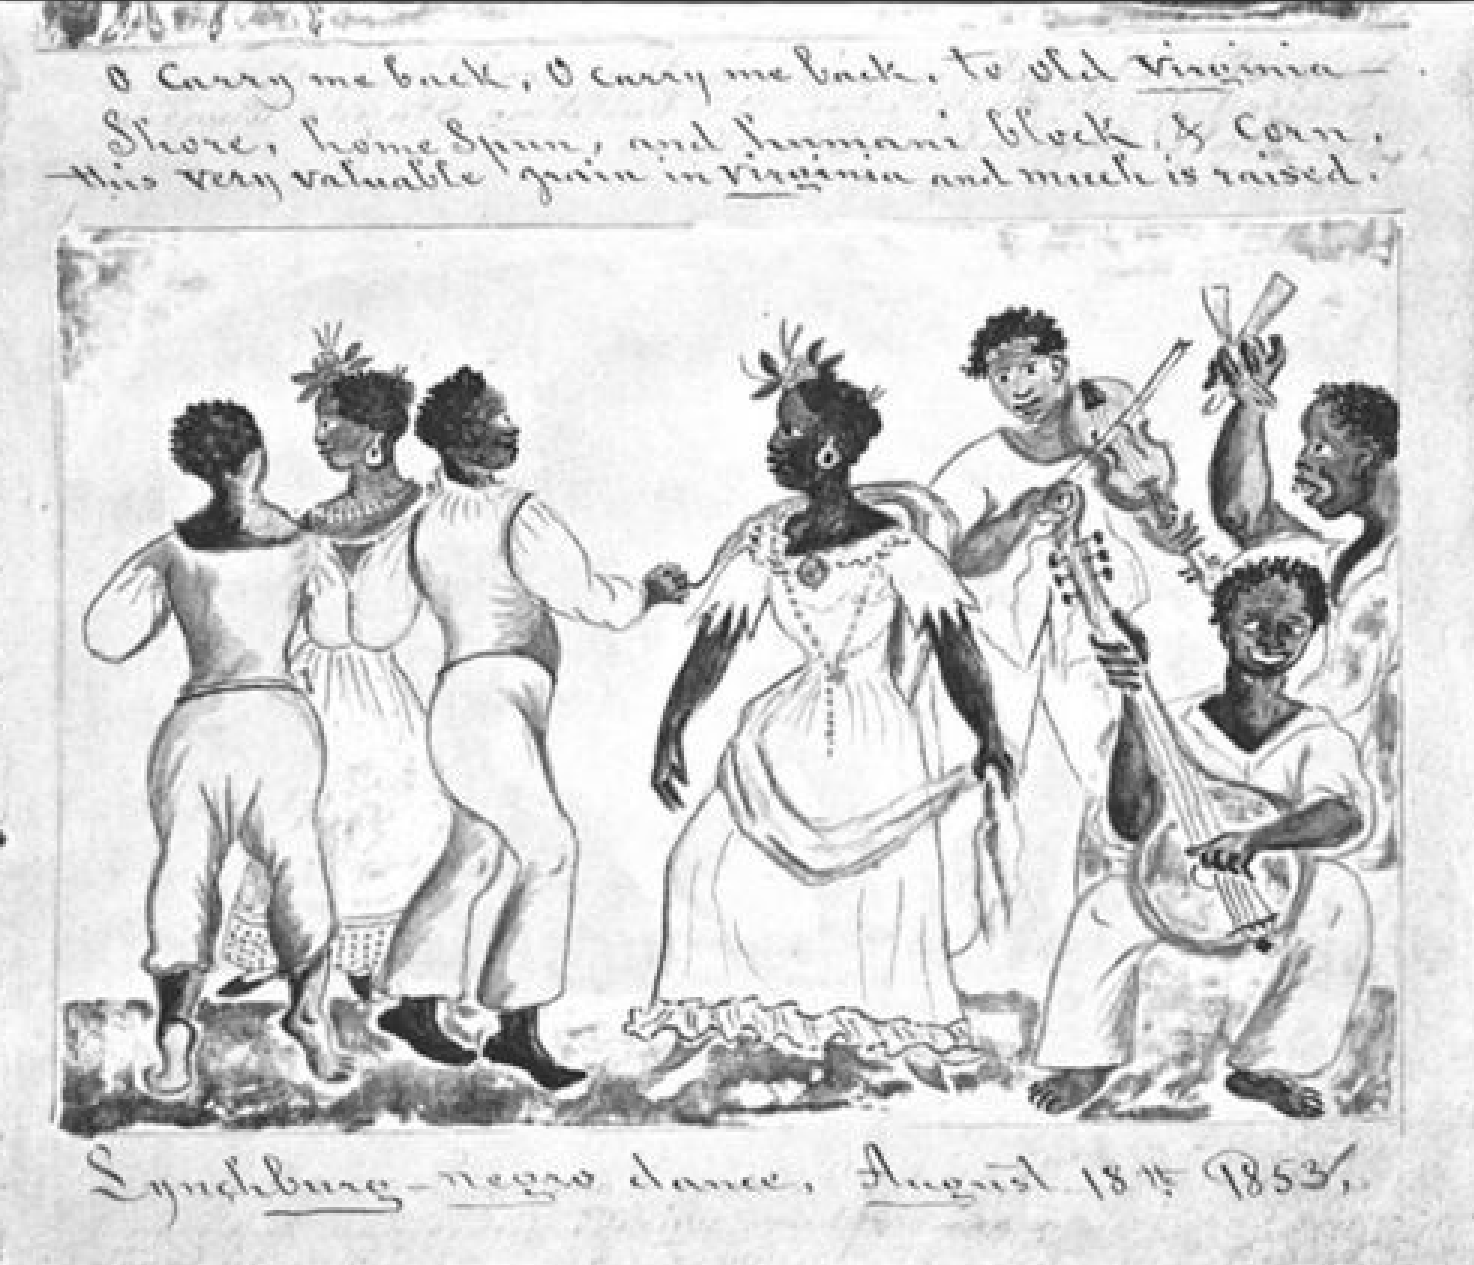 O Carry me back, O carry me back, to old Virginia—
Shore, home Spun, and humani block, & Corn,
this very valuable grain in Virginia and much is raised.
Lynchburg—negro dance, August 18th 1853,